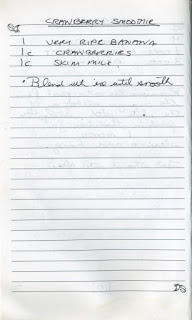 CRANBERRY SMOOTHIE
1 VERY RIPE BANANA
1c CRANBARRIES
1c SKIM MILK
• Blend with ice until smooth